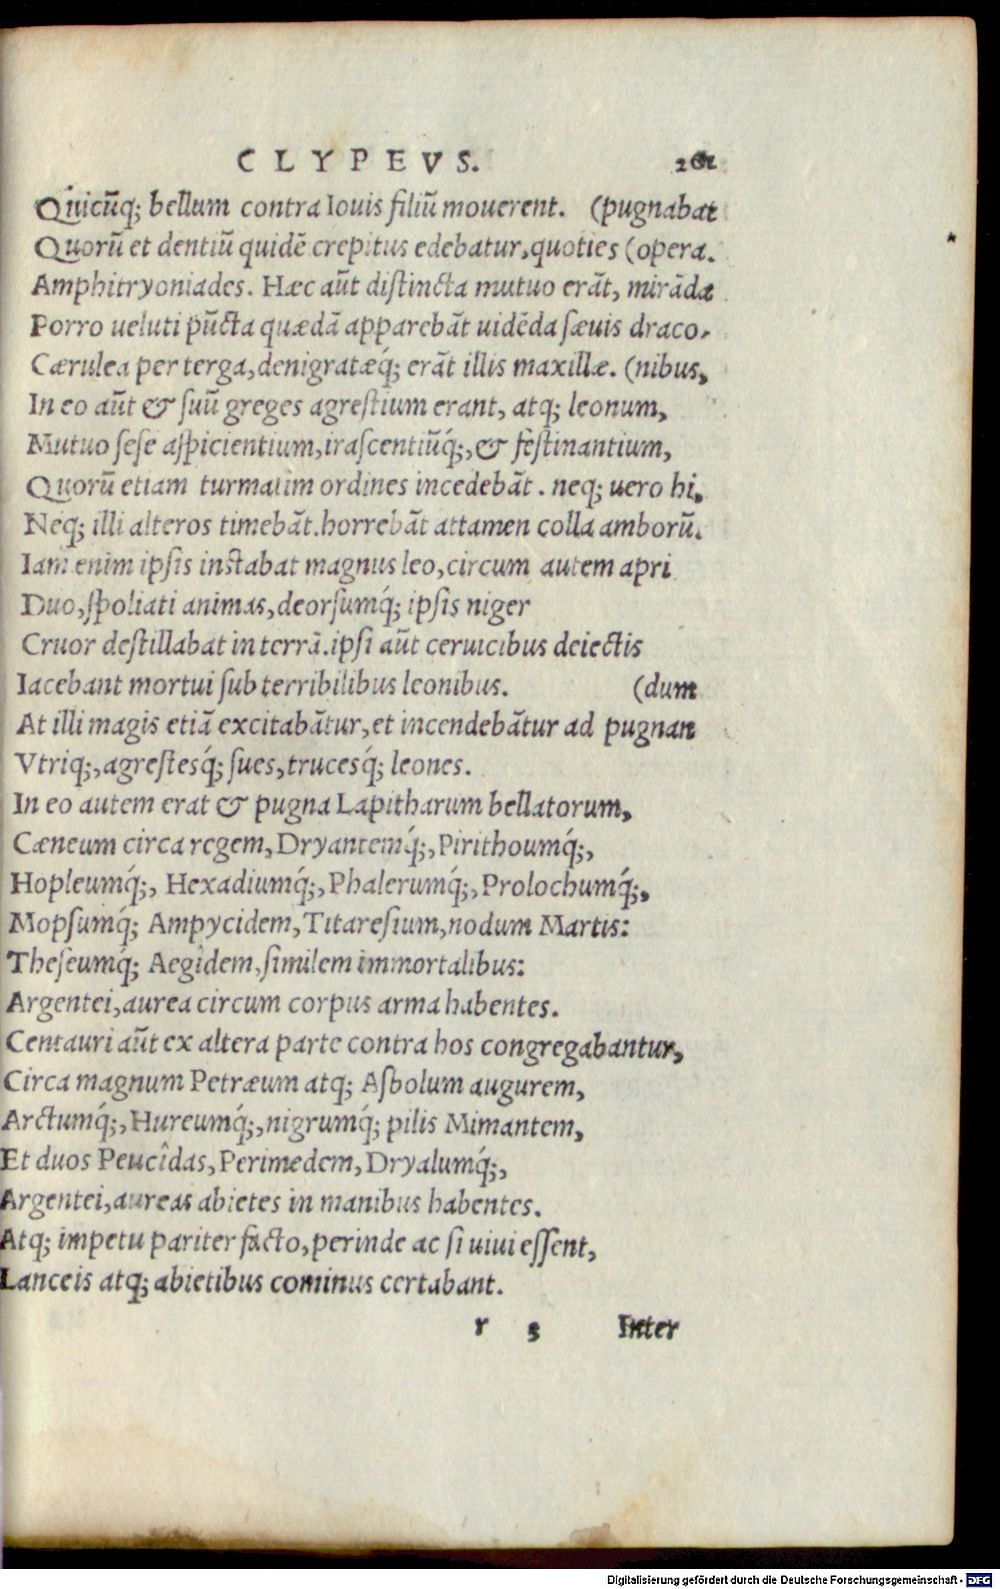 CLYPEVS.
Quicũq; bellum contra Iouis filiũ mouerent. (pugnabat
Quorũ et dentiũ quidẽ crepitus edebatur, quoties (opera.
Amphitryoniades. Hæc aũt distincta mutuo erãt, mirãda
Porro ueluti pũcta quædã apparebãt uidẽda sæuis draco-
Cærulea per terga, denigratæq́; erãt illis maxillæ. (nibus,
In eo aũt & suũ greges agrestium erant, atq; leonum,
Mutuo sese aspicientium, irascentiũq́;, & festinantium,
Quorũ etiam turmatim ordines incedebãt. neq; uero hi,
Neq; illi alteros timebãt. horrebãt attamen colla amborũ.
Iam enim ipsis instabat magnus leo, circum autem apri
Duo, spoliati animas, deorsumq́; ipsis niger
Cruor destillabat in terrã. ipsi aũt ceruicibus deiectis
Iacebant mortui sub terribilibus leonibus. (dum
At illi magis etiã excitabãtur, et incendebãtur ad pugnan
Vtriq;, agrestesq́; sues, trucesq́; leones.
In eo autem erat & pugna Lapitharum bellatorum,
Cæneum circa regem, Dryantemq́;, Pirithoumq́;,
Hopleumq́;, Hexadiumq́;, Phalerumq́;, Prolochumq́;,
Mopsumq́; Ampycidem, Titaresium, nodum Martis:
Theseumq́; Aegîdem, similem immortalibus:
Argentei, aurea circum corpus arma habentes.
Centauri aũt ex altera parte contra hos congregabantur,
Circa magnum Petræum atq; Asbolum augurem,
Arctumq́;, Hureumq́;, nigrumq́; pilis Mimantem,
Et duos Peucîdas, Perimedem, Dryalumq́;,
Argentei, aureas abietes in manibus habentes.
Atq; impetu pariter facto, perinde ac si uiui essent,
Lanceis atq; abietibus cominus certabant.
r 3 Inter
Digitalisierung gefördert durch die Deutsche Forschungsgemeinschaft - DFG